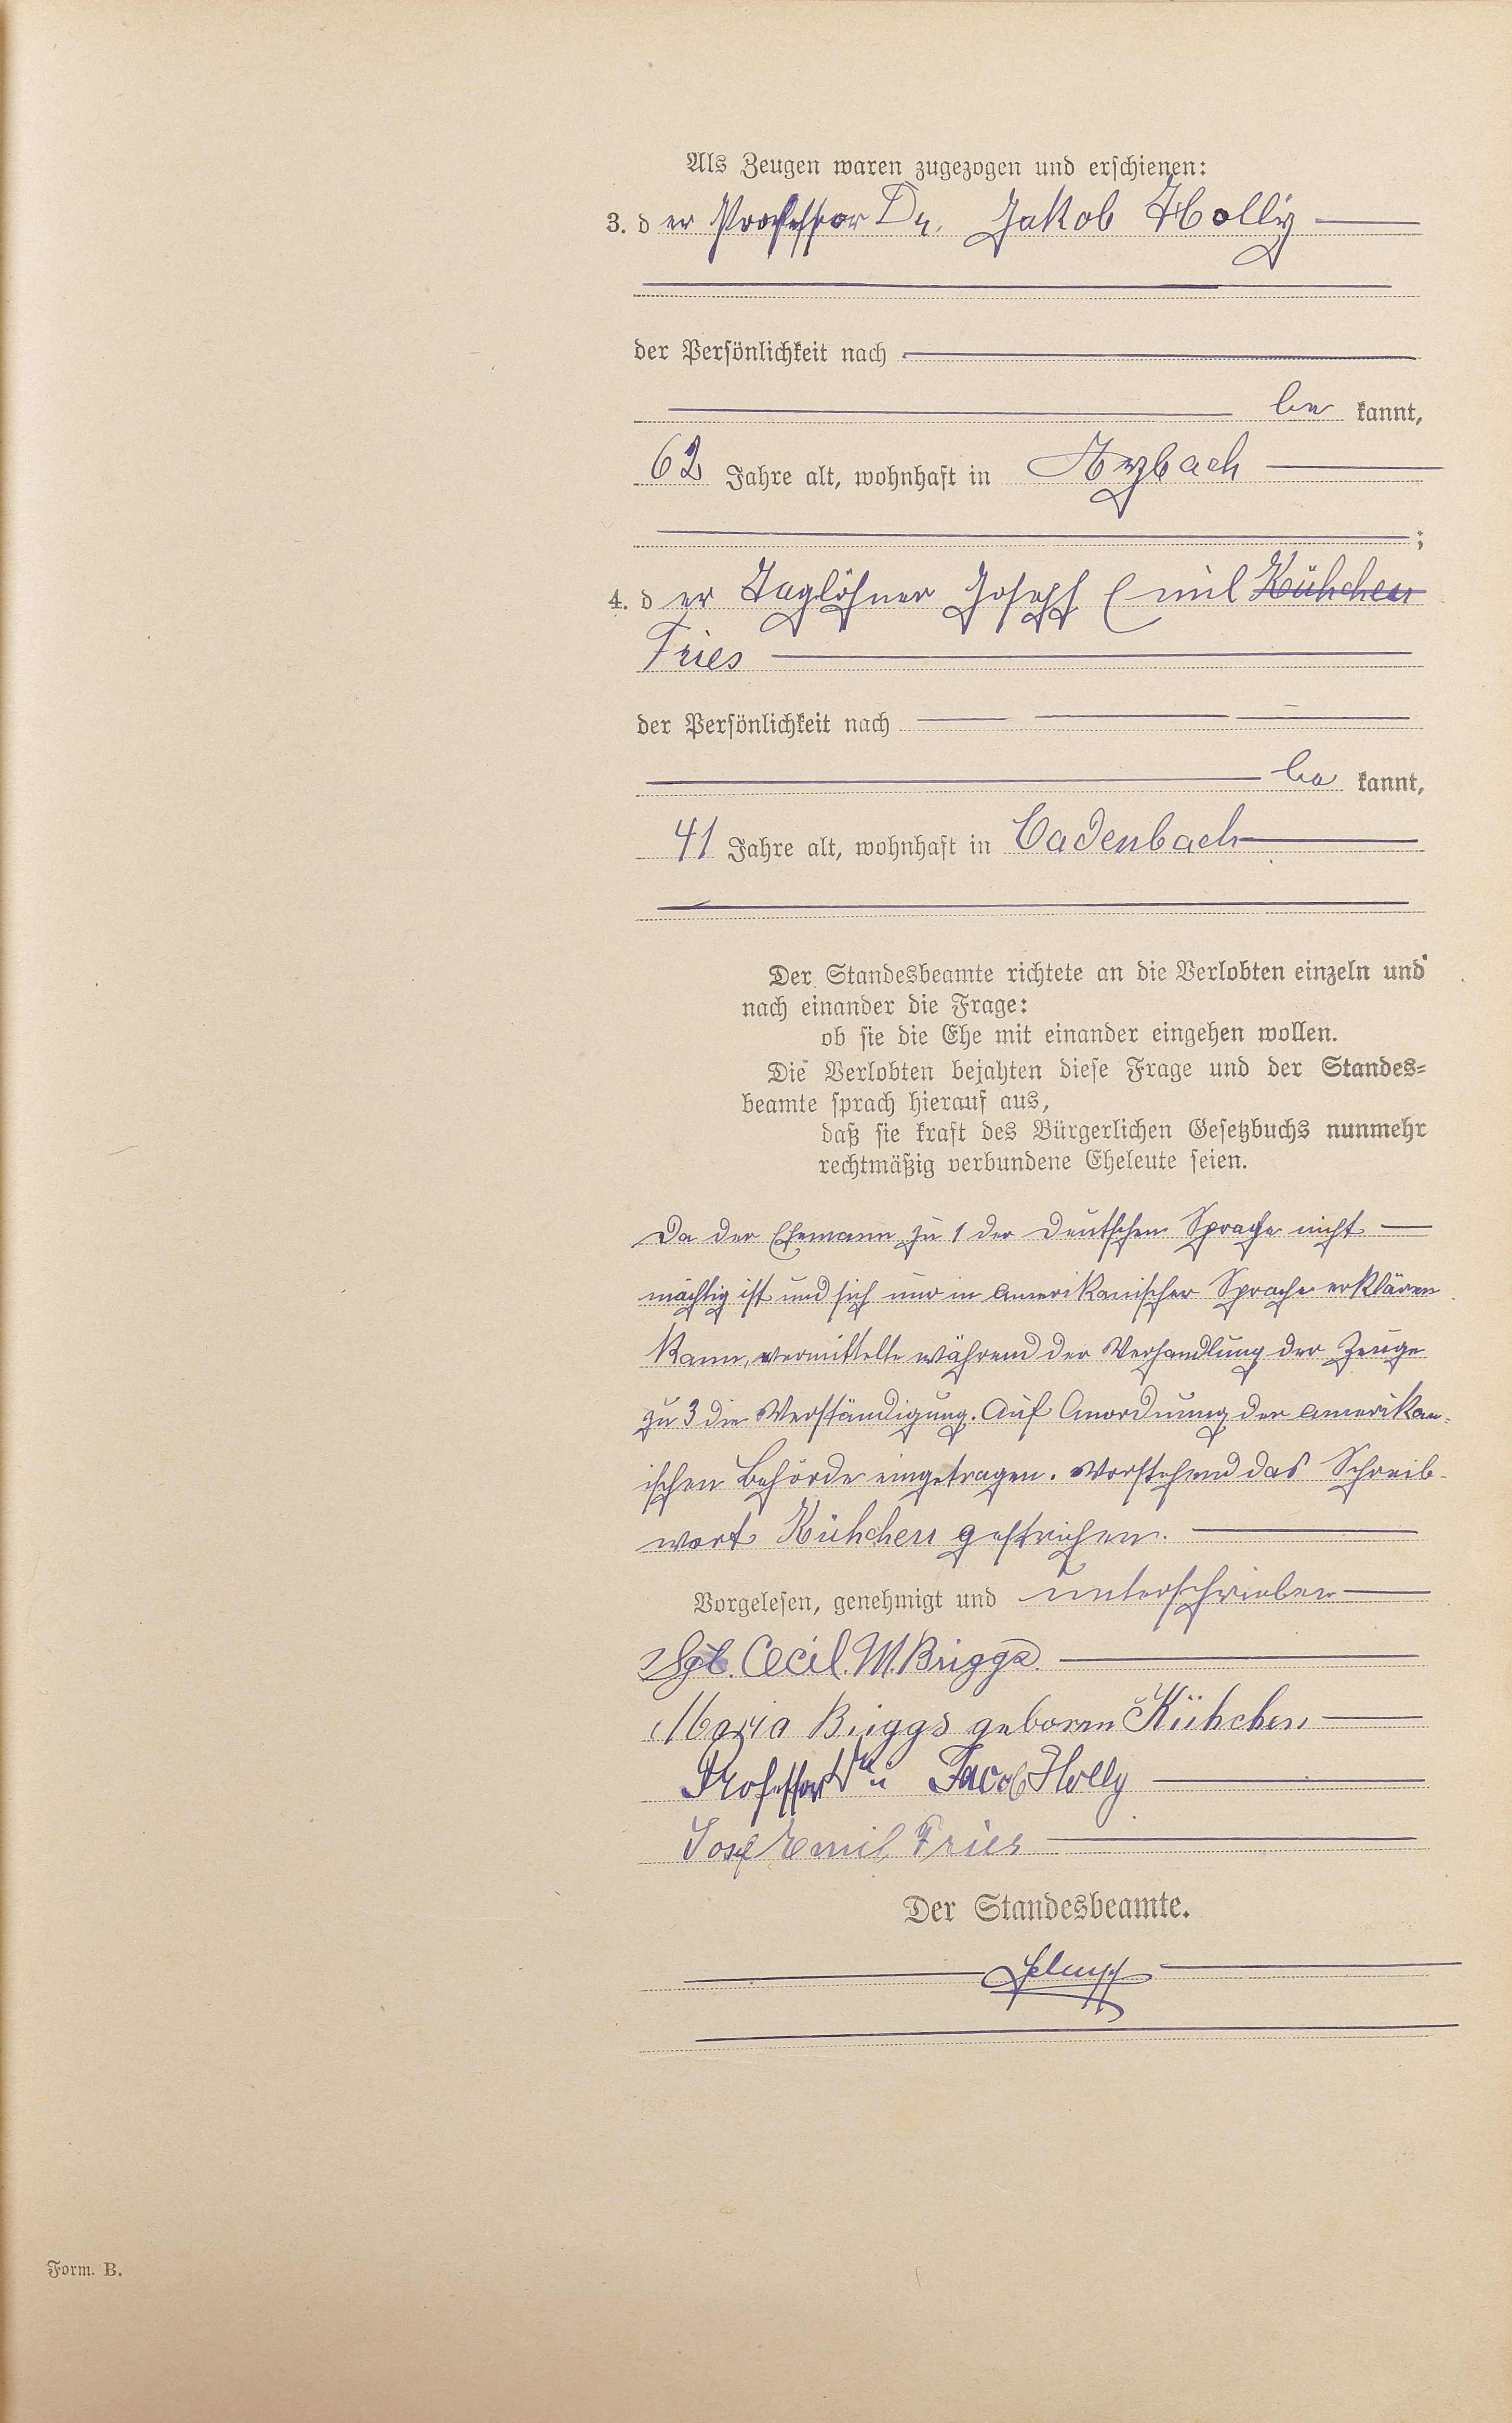 Als Zeugen waren zugezogen und erschienen:
3. der Professor Dr. Jakob Holly
der Persönlichkeit nach
be kannt,
62 Jahre alt, wohnhaft in Arzbach
;
4. der Taglöhner Joseph Emil Kühchen
Fries
der Persönlichkeit nach
be kannt,
41 Jahre alt, wohnhaft in Cadenbach
Der Standesbeamte richtete an die Verlobten einzeln und
nach einander die Frage:
ob sie die Ehe mit einander eingehen wollen.
Die Verlobten bejahten diese Frage und der Standes=
beamte sprach hierauf aus,
daß sie kraft des Bürgerlichen Gesetzbuchs nunmehr
rechtmäßig verbundene Eheleute seien.
Da der Ehemann zu 1 der deutschen Sprache nicht
mächtig ist und sich nur in amerikanischer Sprache erklären
kann, vermittelte während der Verhandlung der Zeuge
zu 3 die Verständigung. Auf Anordnung der amerikan-
ischen Behörde eingetragen. Vorstehend das Schreib-
wort Kühchen gestrichen.
Vorgelesen, genehmigt und unterschrieben
Sgt. Cecil. M. Briggs.
Maria Briggs geboren Kühchen
Professor Dr. Jacob Holly
Josef Emil Fries
Der Standesbeamte.
Form. B.